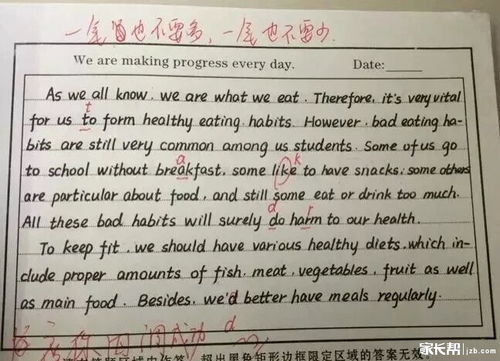 一尾笛也不要多，一尾也不要少.
We are making progress every day. Date:
As we all know, we are what we eat. Therefore, it's very vital
t
for us to form healthy eating habits. However, bad eating ha-
bits are still very common among us students. Some of us go
a k
to school without breakfast, some like to have snacks; some others
are particular about food, and still some eat or drink too much.
d r
All these bad habits will surely do harm to our health.
To keep fit, we should have various healthy diets, which in-
clude proper amounts of fish, meat, vegetables, fruit as well
as main food. Besides, we'd better have meals regularly.
d
超出黑色矩形边框限定区域的答案无效
家长帮 jzb.com